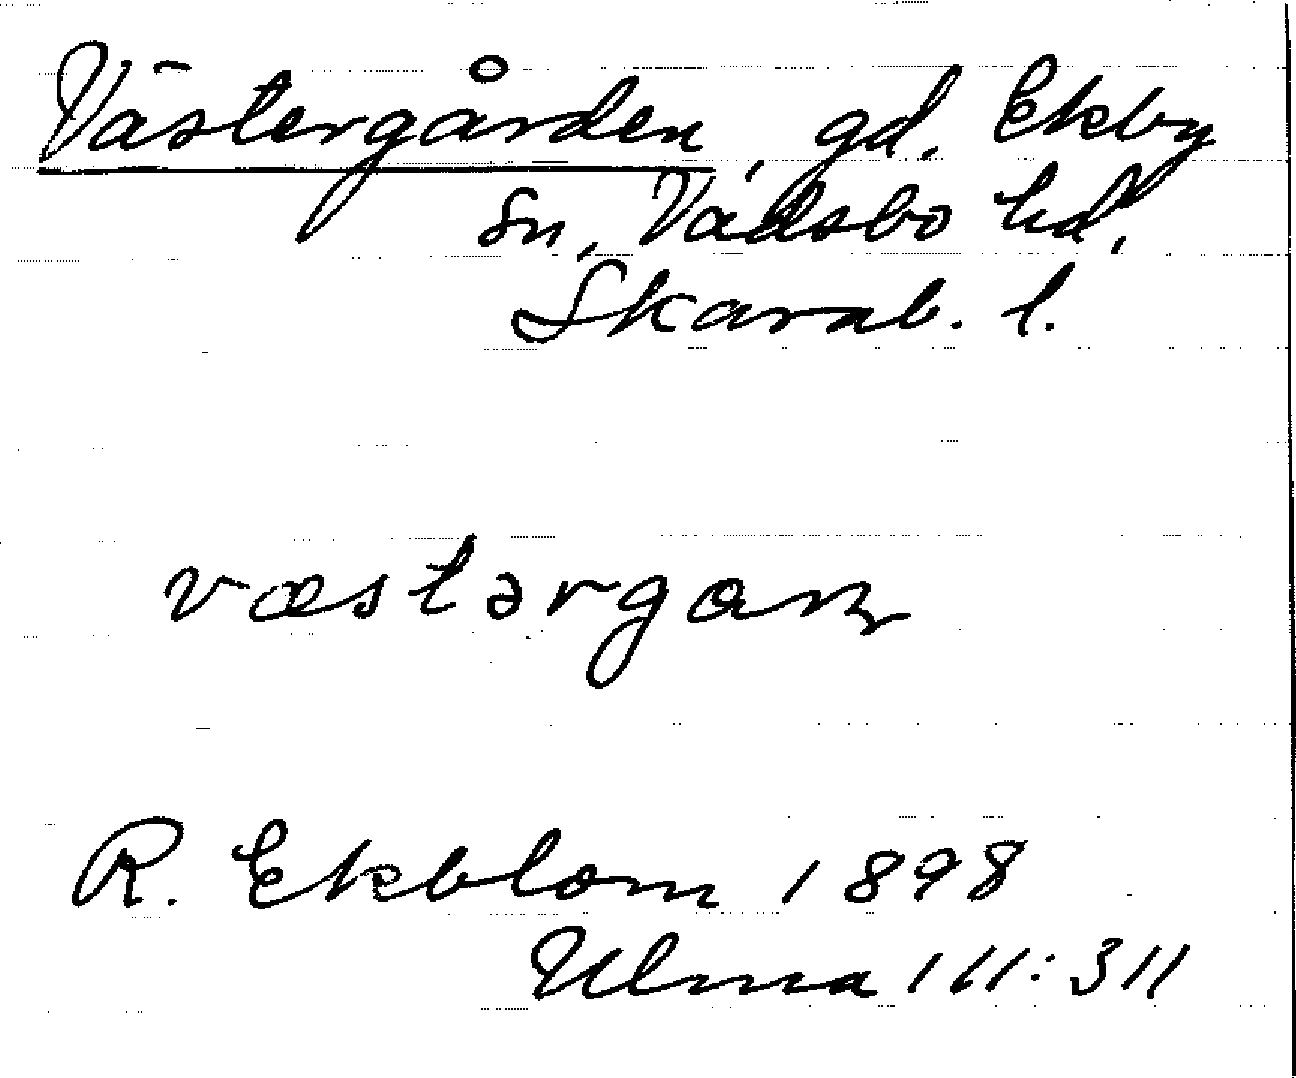 Västergården, gd. Ekby
sn, Vadsbo hd,
Skarab. l.
væstərgaɳ
R. Ekblom 1898
Ulma 111:311